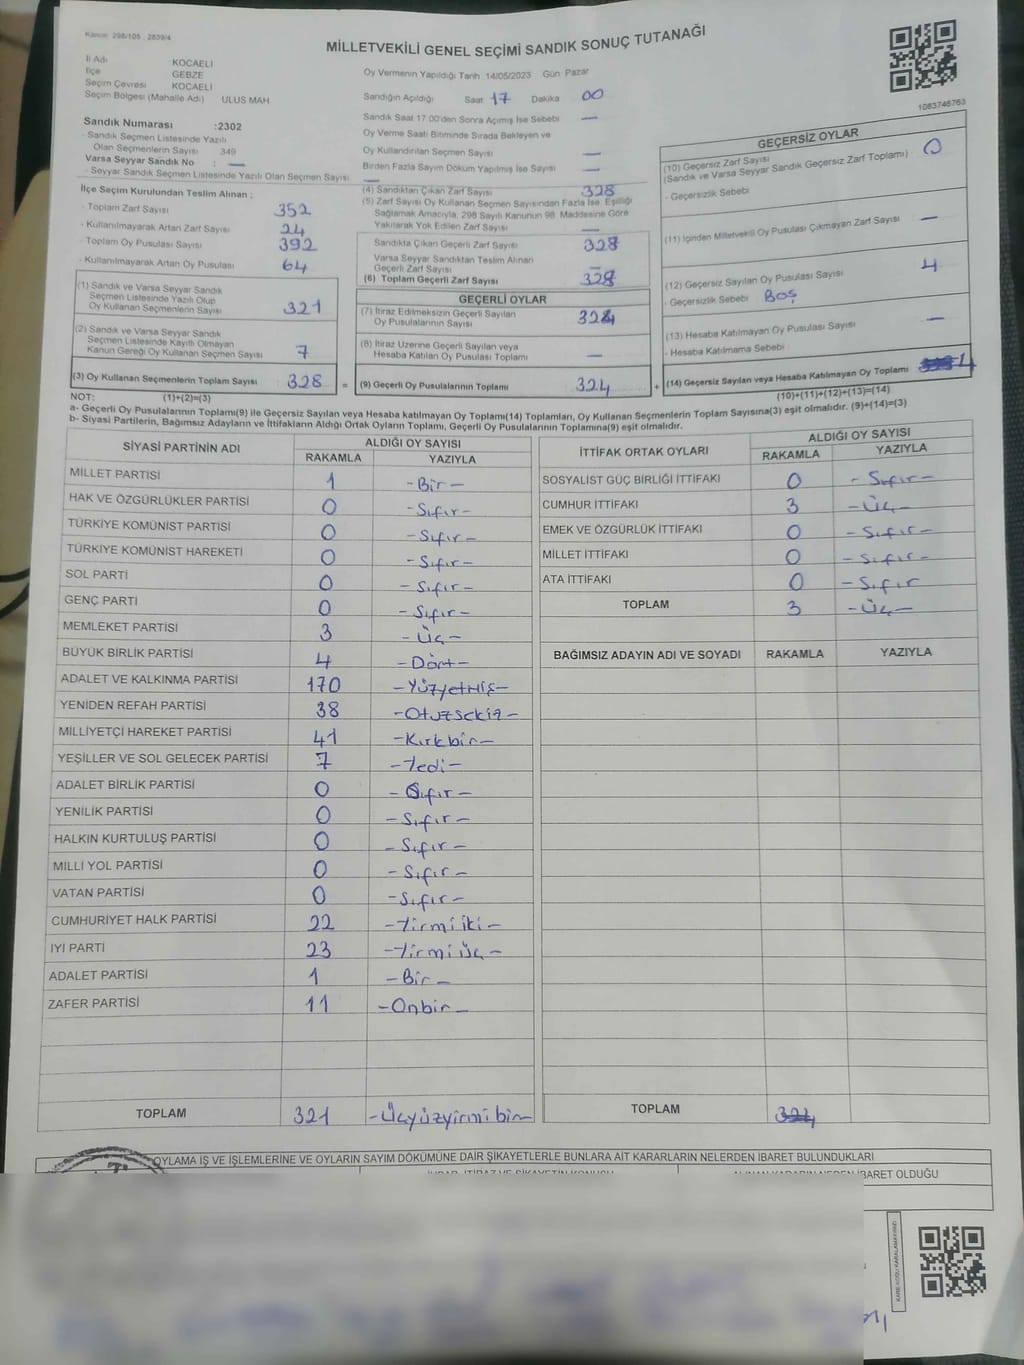 Kanun: 298/105 2839/4
MİLLETVEKİLİ GENEL SEÇİMİ SANDIK SONUÇ TUTANAĞI
İl Adı KOCAELİ
İlçe GEBZE
Seçim Çevresi KOCAELİ
Seçim Bölgesi (Mahalle Adı) ULUS MAH
Sandık Numarası :2302
- Sandık Seçmen Listesinde Yazılı
Olan Seçmenlerin Sayısı 349
Varsa Seyyar Sandık No : —
- Seyyar Sandık Seçmen Listesinde Yazılı Olan Seçmen Sayısı —
İlçe Seçim Kurulundan Teslim Alınan :
- Toplam Zarf Sayısı 352
- Kullanılmayarak Artan Zarf Sayısı 24
- Toplam Oy Pusulası Sayısı 392
- Kullanılmayarak Artan Oy Pusulası 64
(1) Sandık ve Varsa Seyyar Sandık
Seçmen Listesinde Yazılı Olup
Oy Kullanan Seçmenlerin Sayısı 321
(2) Sandık ve Varsa Seyyar Sandık
Seçmen Listesinde Kayıtlı Olmayan
Kanun Gereği Oy Kullanan Seçmen Sayısı 7
(3) Oy Kullanan Seçmenlerin Toplam Sayısı 328 =
Oy Vermenin Yapıldığı Tarih 14/05/2023 Gün Pazar
Sandığın Açıldığı Saat 17 Dakika 00
Sandık Saat 17.00'den Sonra Açılmış İse Sebebi —
Oy Verme Saati Bitiminde Sırada Bekleyen ve
Oy Kullandırılan Seçmen Sayısı —
Birden Fazla Sayım Döküm Yapılmış İse Sayısı —
(4) Sandıktan Çıkan Zarf Sayısı 328
(5) Zarf Sayısı Oy Kullanan Seçmen Sayısından Fazla İse, Eşitliği
Sağlamak Amacıyla, 298 Sayılı Kanunun 98. Maddesine Göre
Yakılarak Yok Edilen Zarf Sayısı —
Sandıkta Çıkan Geçerli Zarf Sayısı 328
Varsa Seyyar Sandıktan Teslim Alınan
Geçerli Zarf Sayısı —
(6) Toplam Geçerli Zarf Sayısı 328
GEÇERLİ OYLAR
(7) İtiraz Edilmeksizin Geçerli Sayılan
Oy Pusulalarının Sayısı 324
(8) İtiraz Üzerine Geçerli Sayılan veya
Hesaba Katılan Oy Pusulası Toplamı —
(9) Geçerli Oy Pusulalarının Toplamı 324 +
1083746763
GEÇERSİZ OYLAR
(10) Geçersiz Zarf Sayısı 0
(Sandık ve Varsa Seyyar Sandık Geçersiz Zarf Toplamı)
- Geçersizlik Sebebi
(11) İçinden Milletvekili Oy Pusulası Çıkmayan Zarf Sayısı —
(12) Geçersiz Sayılan Oy Pusulası Sayısı 4
- Geçersizlik Sebebi Boş
(13) Hesaba Katılmayan Oy Pusulası Sayısı —
- Hesaba Katılmama Sebebi
(14) Geçersiz Sayılan veya Hesaba Katılmayan Oy Toplamı 4
(10)+(11)+(12)+(13)=(14)
NOT: (1)+(2)=(3)
a- Geçerli Oy Pusulalarının Toplamı(9) ile Geçersiz Sayılan veya Hesaba katılmayan Oy Toplamı(14) Toplamları, Oy Kullanan Seçmenlerin Toplam Sayısına(3) eşit olmalıdır. (9)+(14)=(3)
b- Siyasi Partilerin, Bağımsız Adayların ve İttifakların Aldığı Ortak Oyların Toplamı, Geçerli Oy Pusulalarının Toplamına(9) eşit olmalıdır.
SİYASİ PARTİNİN ADI ALDIĞI OY SAYISI
RAKAMLA YAZIYLA
MİLLET PARTİSİ 1 -Bir-
HAK VE ÖZGÜRLÜKLER PARTİSİ 0 -Sıfır-
TÜRKİYE KOMÜNİST PARTİSİ 0 -Sıfır-
TÜRKİYE KOMÜNİST HAREKETİ 0 -Sıfır-
SOL PARTİ 0 -Sıfır-
GENÇ PARTİ 0 -Sıfır-
MEMLEKET PARTİSİ 3 -Üç-
BÜYÜK BİRLİK PARTİSİ 4 -Dört-
ADALET VE KALKINMA PARTİSİ 170 -Yüzyetmiş-
YENİDEN REFAH PARTİSİ 38 -Otuzsekiz-
MİLLİYETÇİ HAREKET PARTİSİ 41 -Kırkbir-
YEŞİLLER VE SOL GELECEK PARTİSİ 7 -Yedi-
ADALET BİRLİK PARTİSİ 0 -Sıfır-
YENİLİK PARTİSİ 0 -Sıfır-
HALKIN KURTULUŞ PARTİSİ 0 -Sıfır-
MİLLİ YOL PARTİSİ 0 -Sıfır-
VATAN PARTİSİ 0 -Sıfır-
CUMHURİYET HALK PARTİSİ 22 -Yirmiiki-
İYİ PARTİ 23 -Yirmiüç-
ADALET PARTİSİ 1 -Bir-
ZAFER PARTİSİ 11 -Onbir-
TOPLAM 321 -Üçyüzyirmibir-
İTTİFAK ORTAK OYLARI ALDIĞI OY SAYISI
RAKAMLA YAZIYLA
SOSYALİST GÜÇ BİRLİĞİ İTTİFAKI 0 -Sıfır-
CUMHUR İTTİFAKI 3 -Üç-
EMEK VE ÖZGÜRLÜK İTTİFAKI 0 -Sıfır-
MİLLET İTTİFAKI 0 -Sıfır-
ATA İTTİFAKI 0 -Sıfır
TOPLAM 3 -Üç-
BAĞIMSIZ ADAYIN ADI VE SOYADI RAKAMLA YAZIYLA
TOPLAM 324
OYLAMA İŞ VE İŞLEMLERİNE VE OYLARIN SAYIM DÖKÜMÜNE DAİR ŞİKAYETLERLE BUNLARA AİT KARARLARIN NELERDEN İBARET BULUNDUKLARI
İBARET OLDUĞU